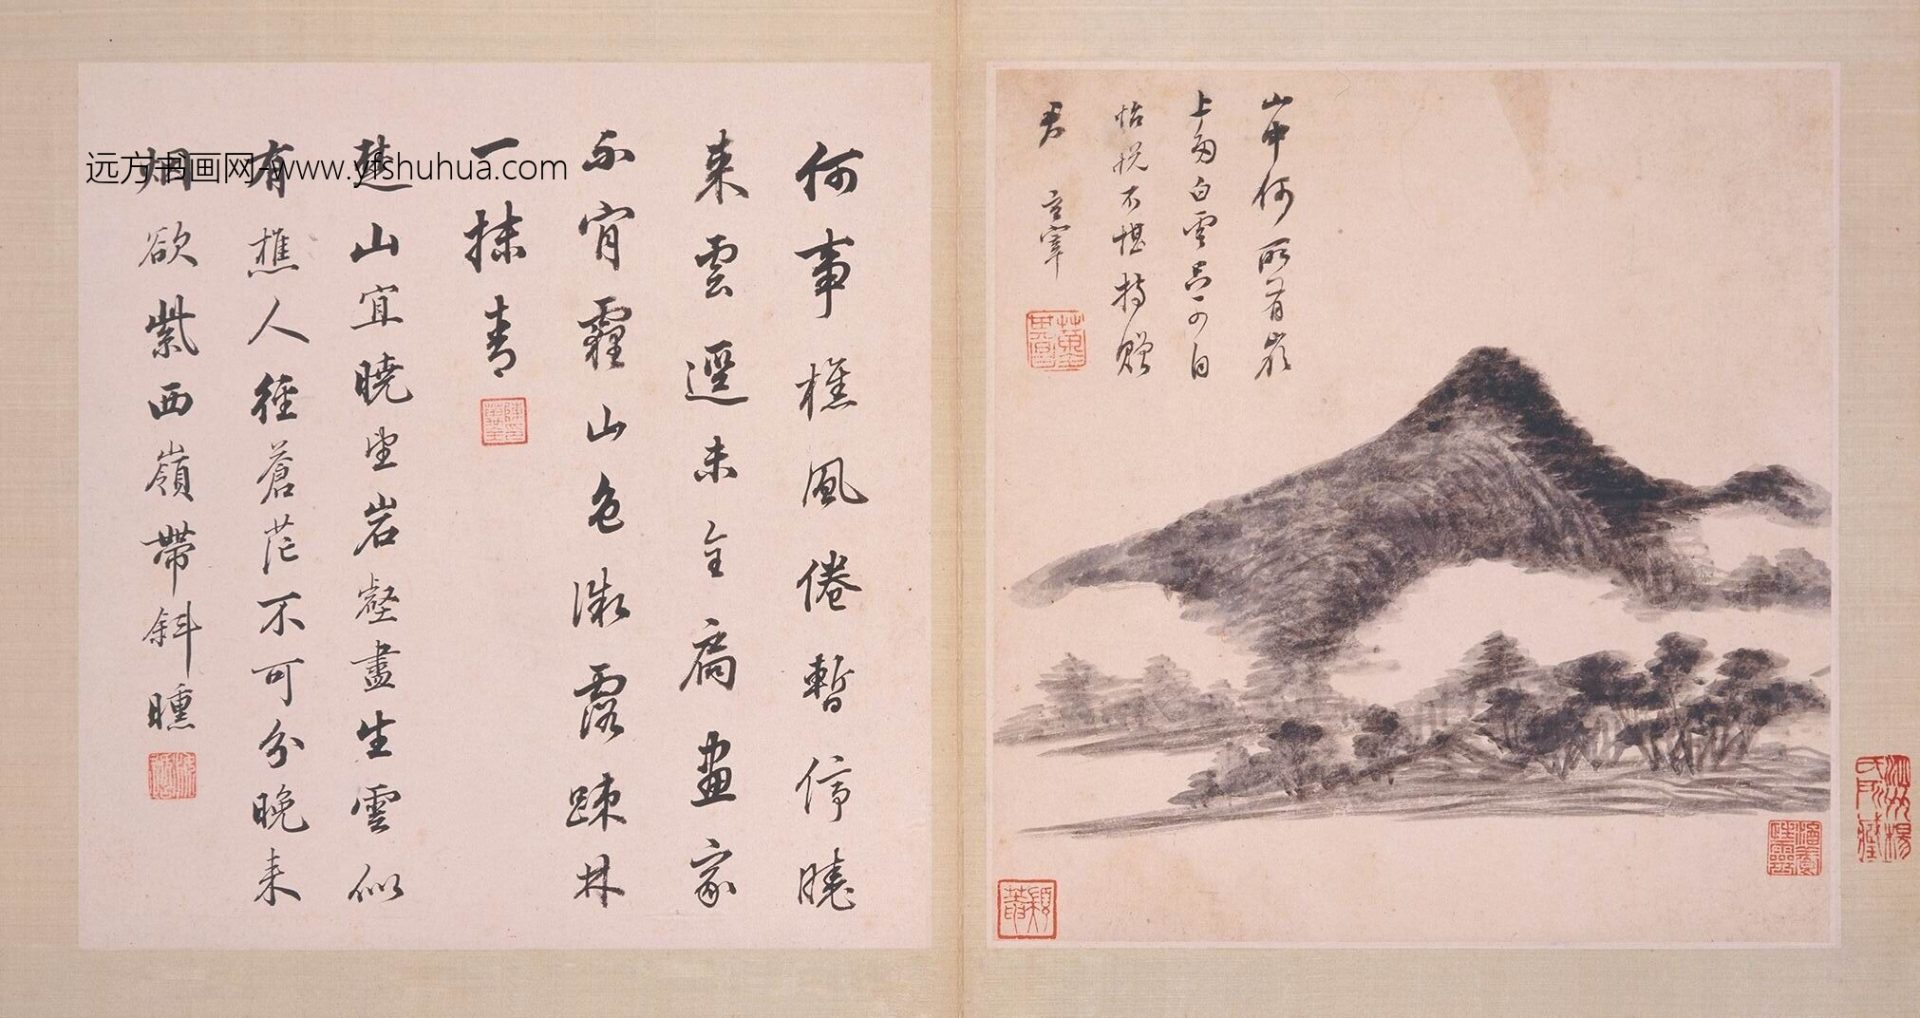 山中何所有嶺
上多白雲只可自
怡悅不堪持贈
君 玄宰
何事樵風倦暫停曉
來雲逕未全扃畫家
不肯霾山色微露疎林
一抹青
楚山宜曉望岩壑盡生雲似
有樵人徑蒼茫不可分晚来
烟欲紫西嶺帶斜曛
远方书画网-www.yfshuhua.com